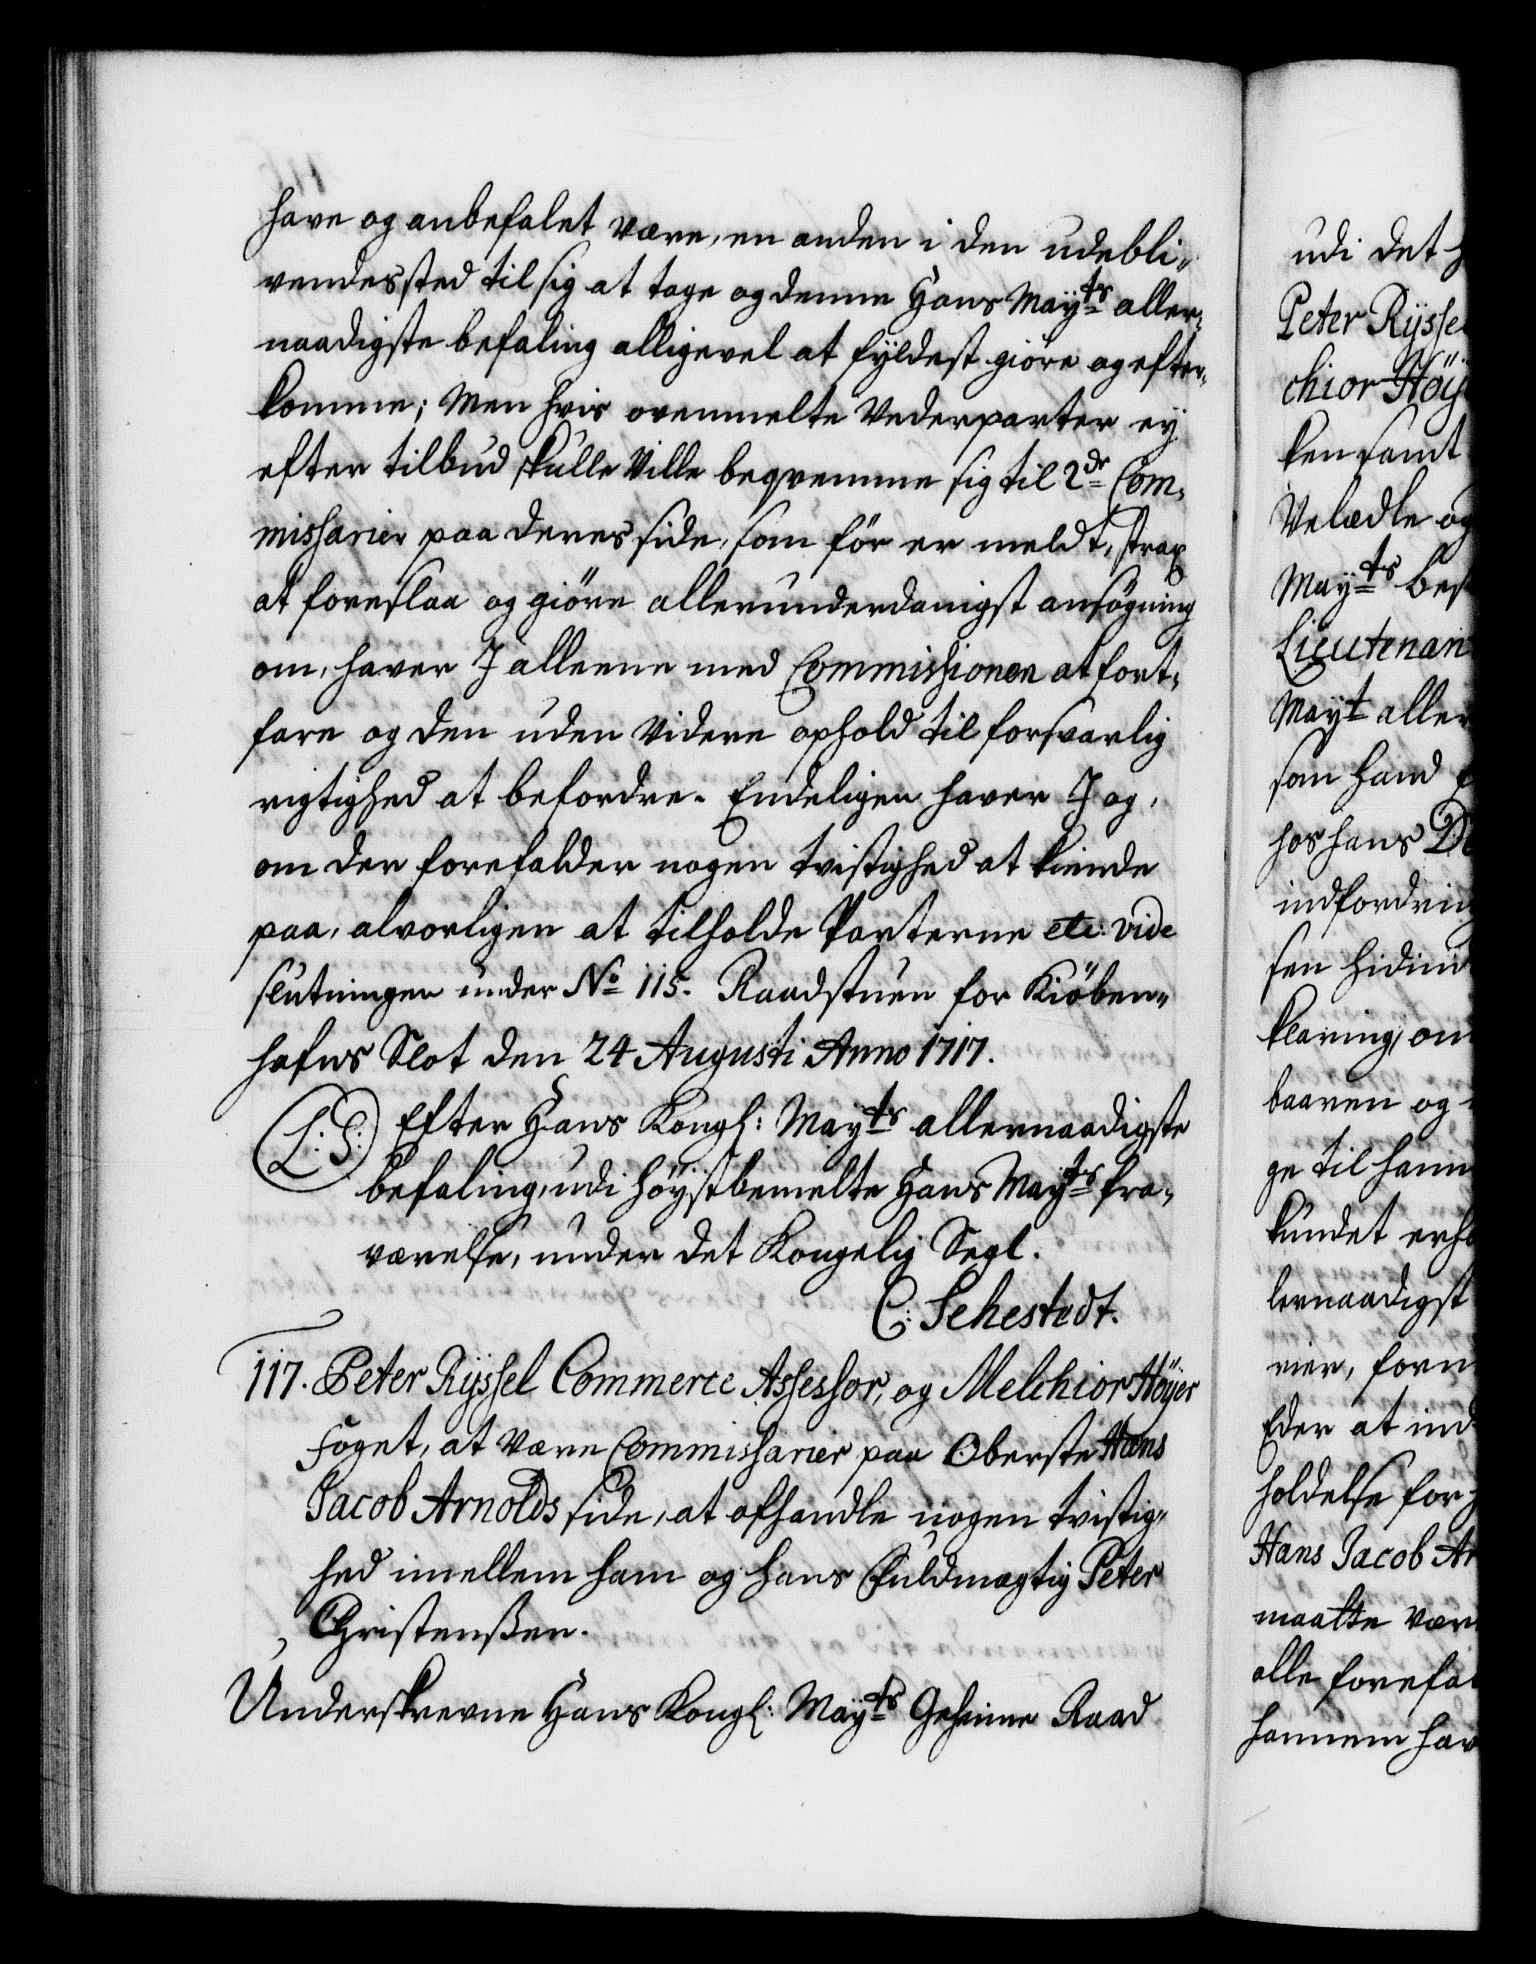 have og anbefalet være, en anden i den udebli¬
vendes sted til sig at tage og denne Hans Mayts aller¬
naadigste befaling alligevel at fyldest giöre og efter¬
komme; Men hvis ovenmelte Vederparter ey
efter tilbud skulle Ville beqvemme sig til 2de Com¬
missarier paa deres side, som för er meldt, strax
at foreslaa og giöre allerunderdanigst ansögning
om, haver I alleene med Commissionen at fort¬
fare og den uden Videre ophold til forsvarlig
rigtighed at befordre. Endeligen haver I og,
om der forefalder nogen tvistighed at kiende
paa, alvorligen at tilholde Parterne etc: vide
slutningen under No 115. Raadstuen for Kiöben¬
hafns Slot den 24 Augusti Anno 1717.
(L: S:) Efter Hans Kongl: Mayts allernaadigste
befaling, udi höystbemelte Hans Mayts fra¬
værelse, under det Kongelig Segl.
C: Sehestedt.
117. Peter Rÿssel Commerce Assessor, og Melchior Höÿer
Foget, at være Commissarier paa Oberste Hans
Jacob Arnolds side, at afhandle nogen tvistig¬
hed imellem ham og hans Fuldmægtig Peter
Christenßen.
Underskrevne Hans Kongl: Mayts Geheime Raad
udi det
Peter Rÿssel
chior Höÿ
ken samt
Velædle og
Mayts bes
Lieutenan
Mayt aller
som hand
hos hans
indfordrin
sen hidind
klaring, om
baaren og
ge til ham
kundet erh
lernaadigst
rier, forn
Eder at ind
holdelse for
Hans Jacob Ar
maatte vær
alle forefal
hannem hav